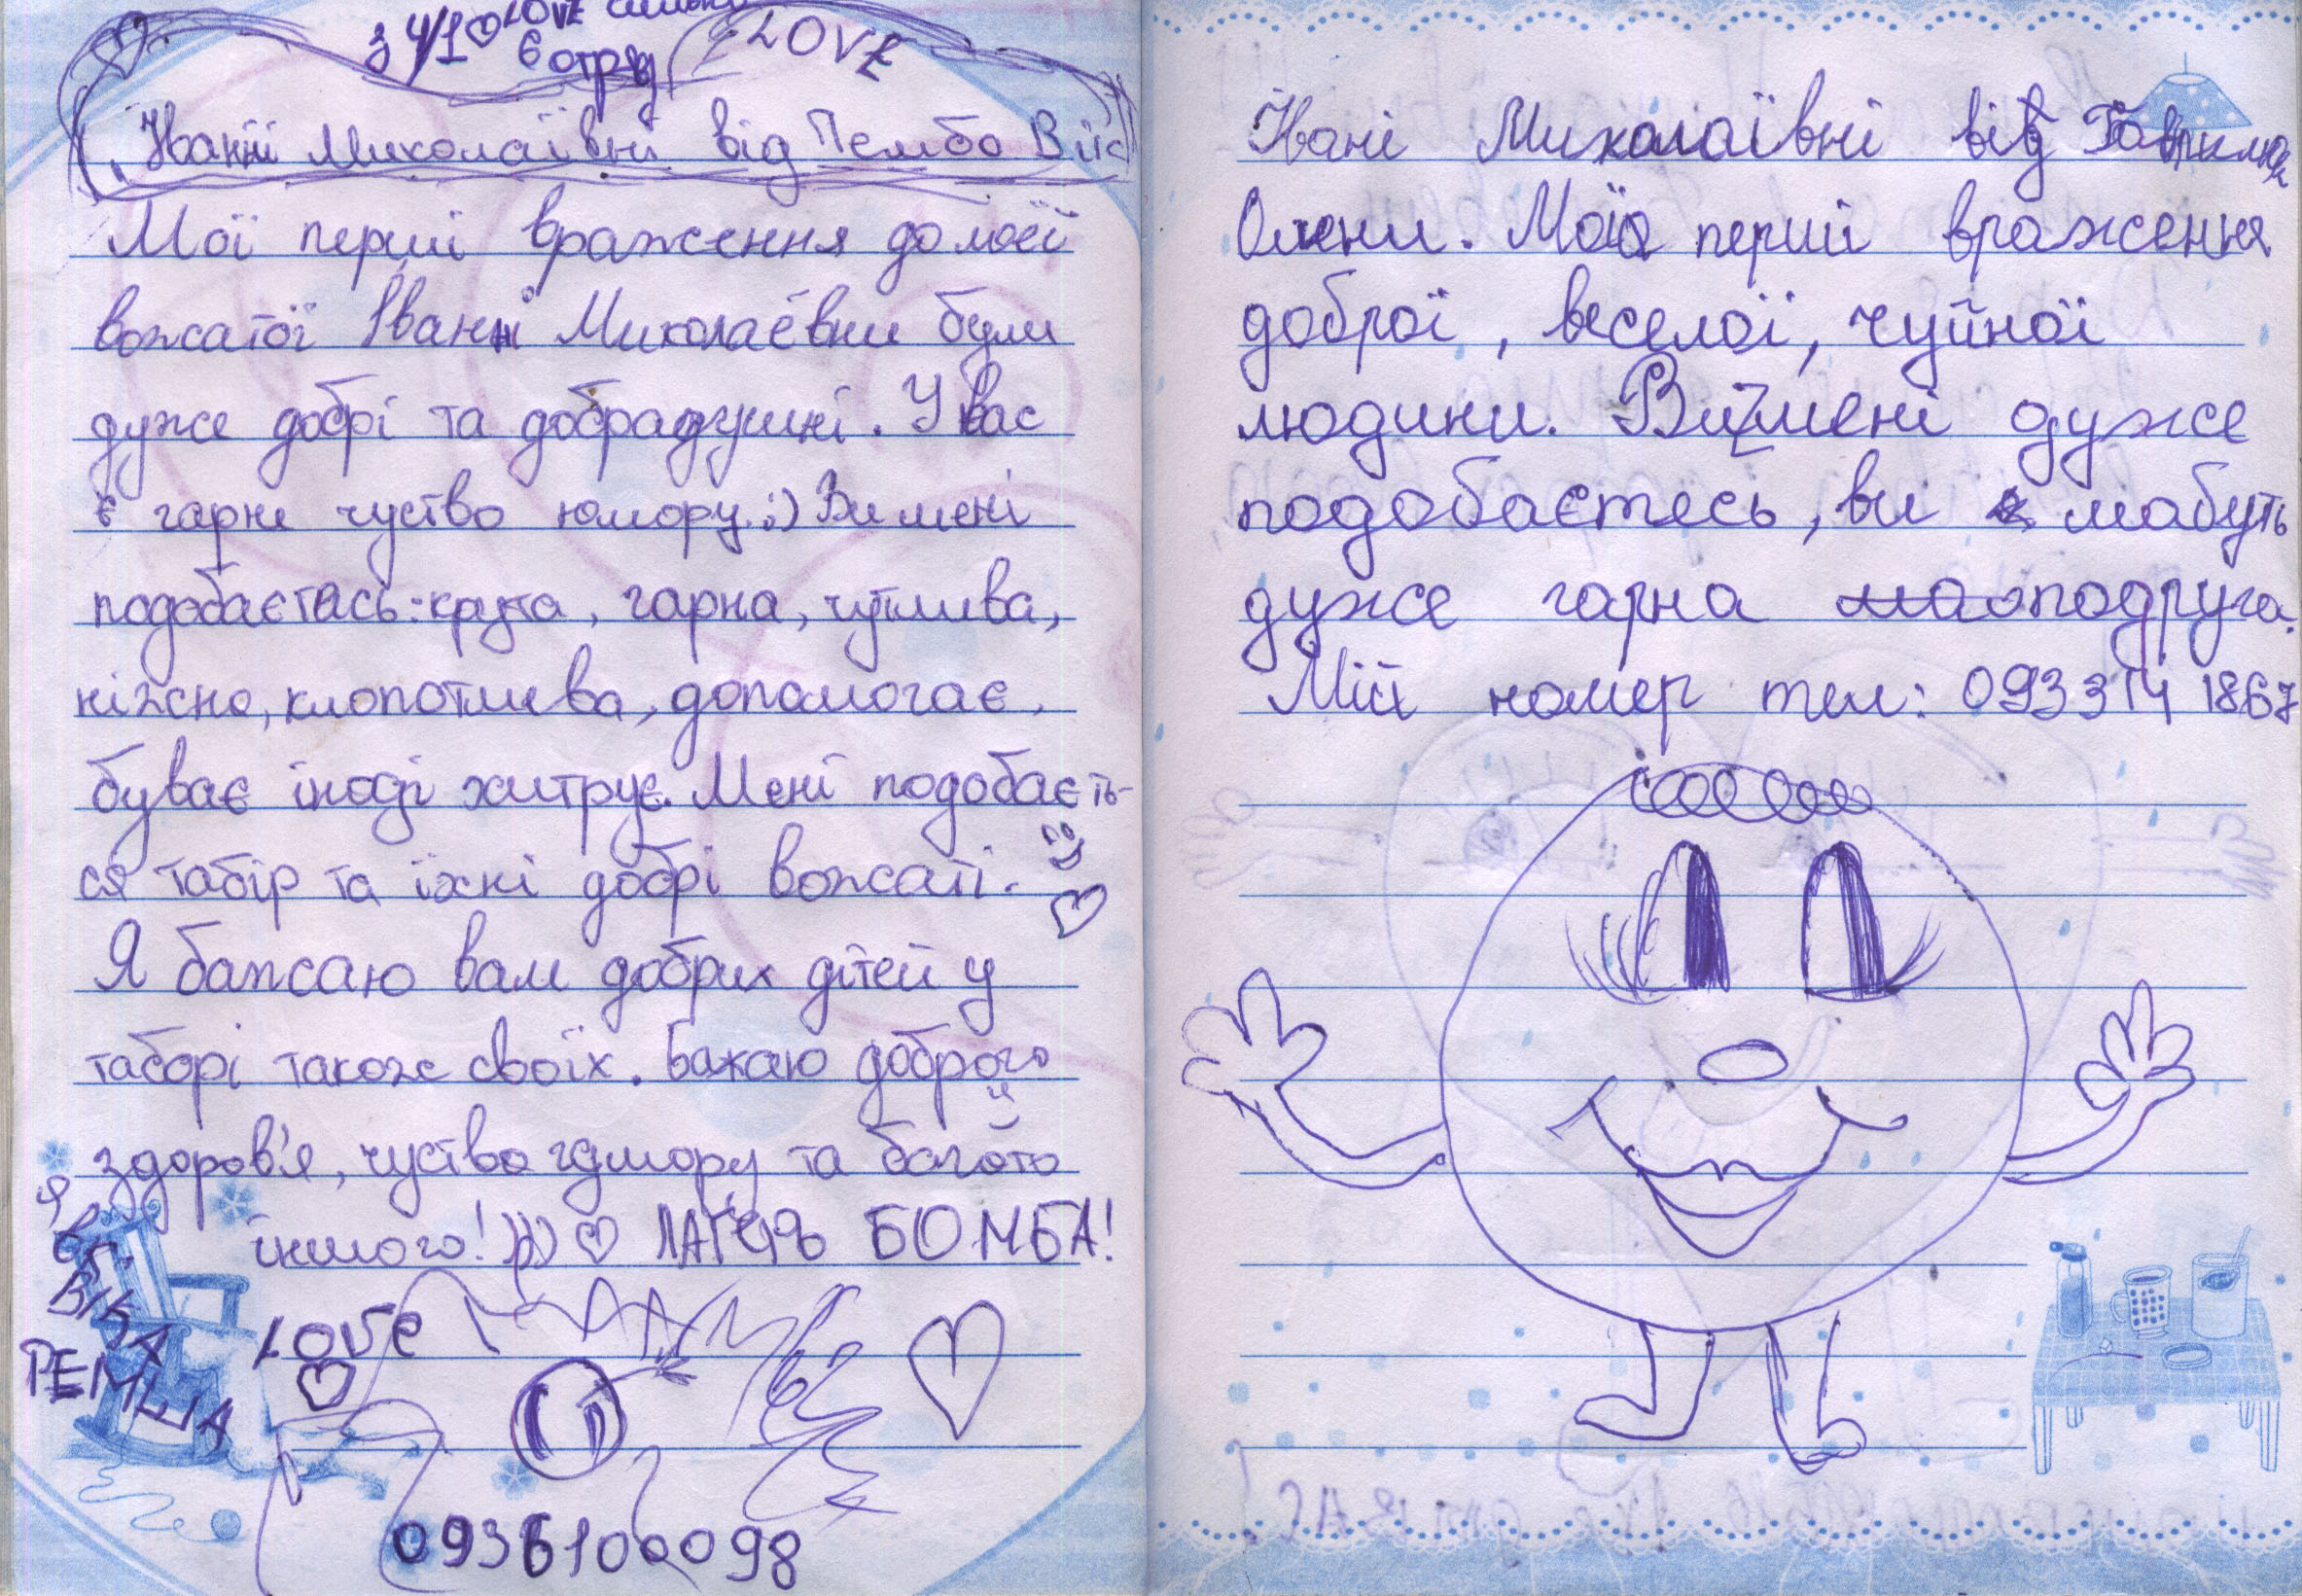 з 4/1 LOVE
6 отряд
LOVE
Іванні Миколаївні від Пембо Вік
Мої перші враження до моєї
вожатої Іванні Миколаєвни були
дуже добрі та добрадушні. У вас
є гарне чуство юмору :) Ви мені
подобаєтась: крута, гарна, чутлива,
ніжна, клопотлива, допомогає,
буває іноді хитрує. Мені подобаєть-
ся табір та їхні добрі вожаті.
Я бажаю вам добрих дітей у
таборі також своїх. Бажаю доброго
здоров'я, чуство гумору та багато
іншого! ))) ЛАГЕРЬ БОМБА!
ВІКА
LOVE
0936100098
Івані Миколаївні від Гаврилюк
Олени. Мої перші враження
доброї, веселої, чуйної
людини. Ви мені дуже
подобаєтесь, ви мабуть
дуже гарна подруга.
Мій номер тел: 093 314 1867